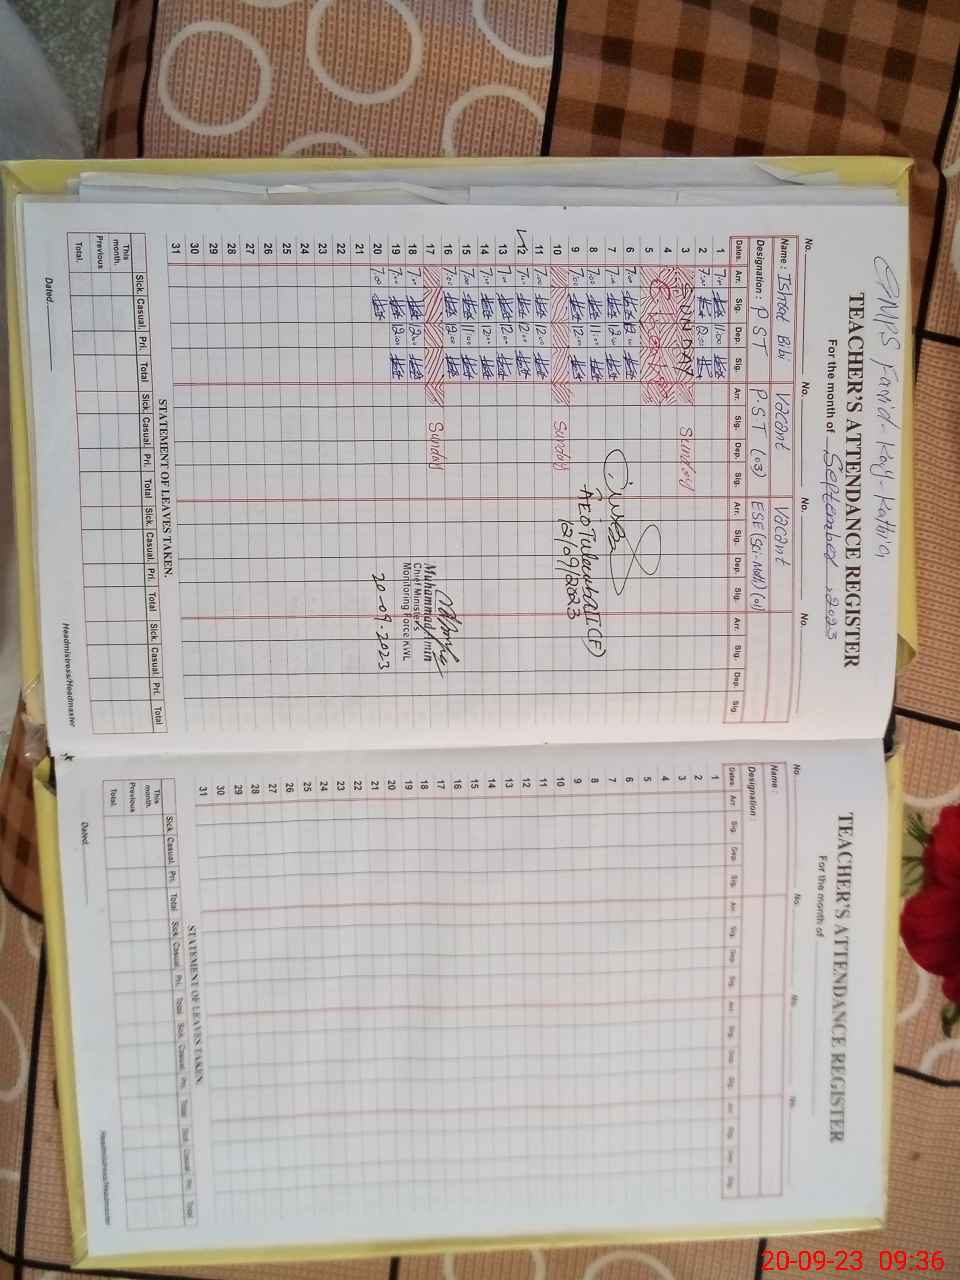 GMPS Farid-Kay-Kathia
TEACHER'S ATTENDANCE REGISTER
For the month of September, 2023
No. No. No. No.
Name : Ishrat Bibi Vacant Vacant
Designation : P S T P.S.T (03) ESE (Sci-Math) (01)
Dates. Arr. Sig. Dep. Sig. Arr. Sig. Dep. Sig. Arr. Sig. Dep. Sig. Arr. Sig. Dep. Sig.
1 7:00 11:00
2 7:00 12:00
3 SUNDAY Sunday
4
5
6 7:00 12:00
7 7:00 12:00
8 7:00 11:00
9 7:00 12:00
10 Sunday
11 7:00 12:00
12 7:00 12:00
13 7:00 12:00
14 7:00 12:00
15 7:00 11:00
16 7:00 12:00
17 Sunday
18 7:00 12:00
19 7:00 12:00
20 7:00
21
22
23
24
25
26
27
28
29
30
31
12/09/2023
Muhammad Amin
Chief Minister's
Monitoring Force KWL
20-09-2023
STATEMENT OF LEAVES TAKEN.
Sick. Casual. Pri. Total Sick. Casual. Pri. Total Sick. Casual. Pri. Total Sick. Casual. Pri. Total
This month.
Previous
Total.
Dated.
Headmistress/Headmaster
TEACHER'S ATTENDANCE REGISTER
For the month of
No. No. No. No.
Name :
Designation :
Dates. Arr. Sig. Dep. Sig. Arr. Sig. Dep. Sig. Arr. Sig. Dep. Sig. Arr. Sig. Dep. Sig.
1
2
3
4
5
6
7
8
9
10
11
12
13
14
15
16
17
18
19
20
21
22
23
24
25
26
27
28
29
30
31
STATEMENT OF LEAVES TAKEN.
Sick. Casual. Pri. Total Sick. Casual. Pri. Total Sick. Casual. Pri. Total Sick. Casual. Pri. Total
This month.
Previous
Total.
Dated.
Headmistress/Headmaster
20-09-23 09:36